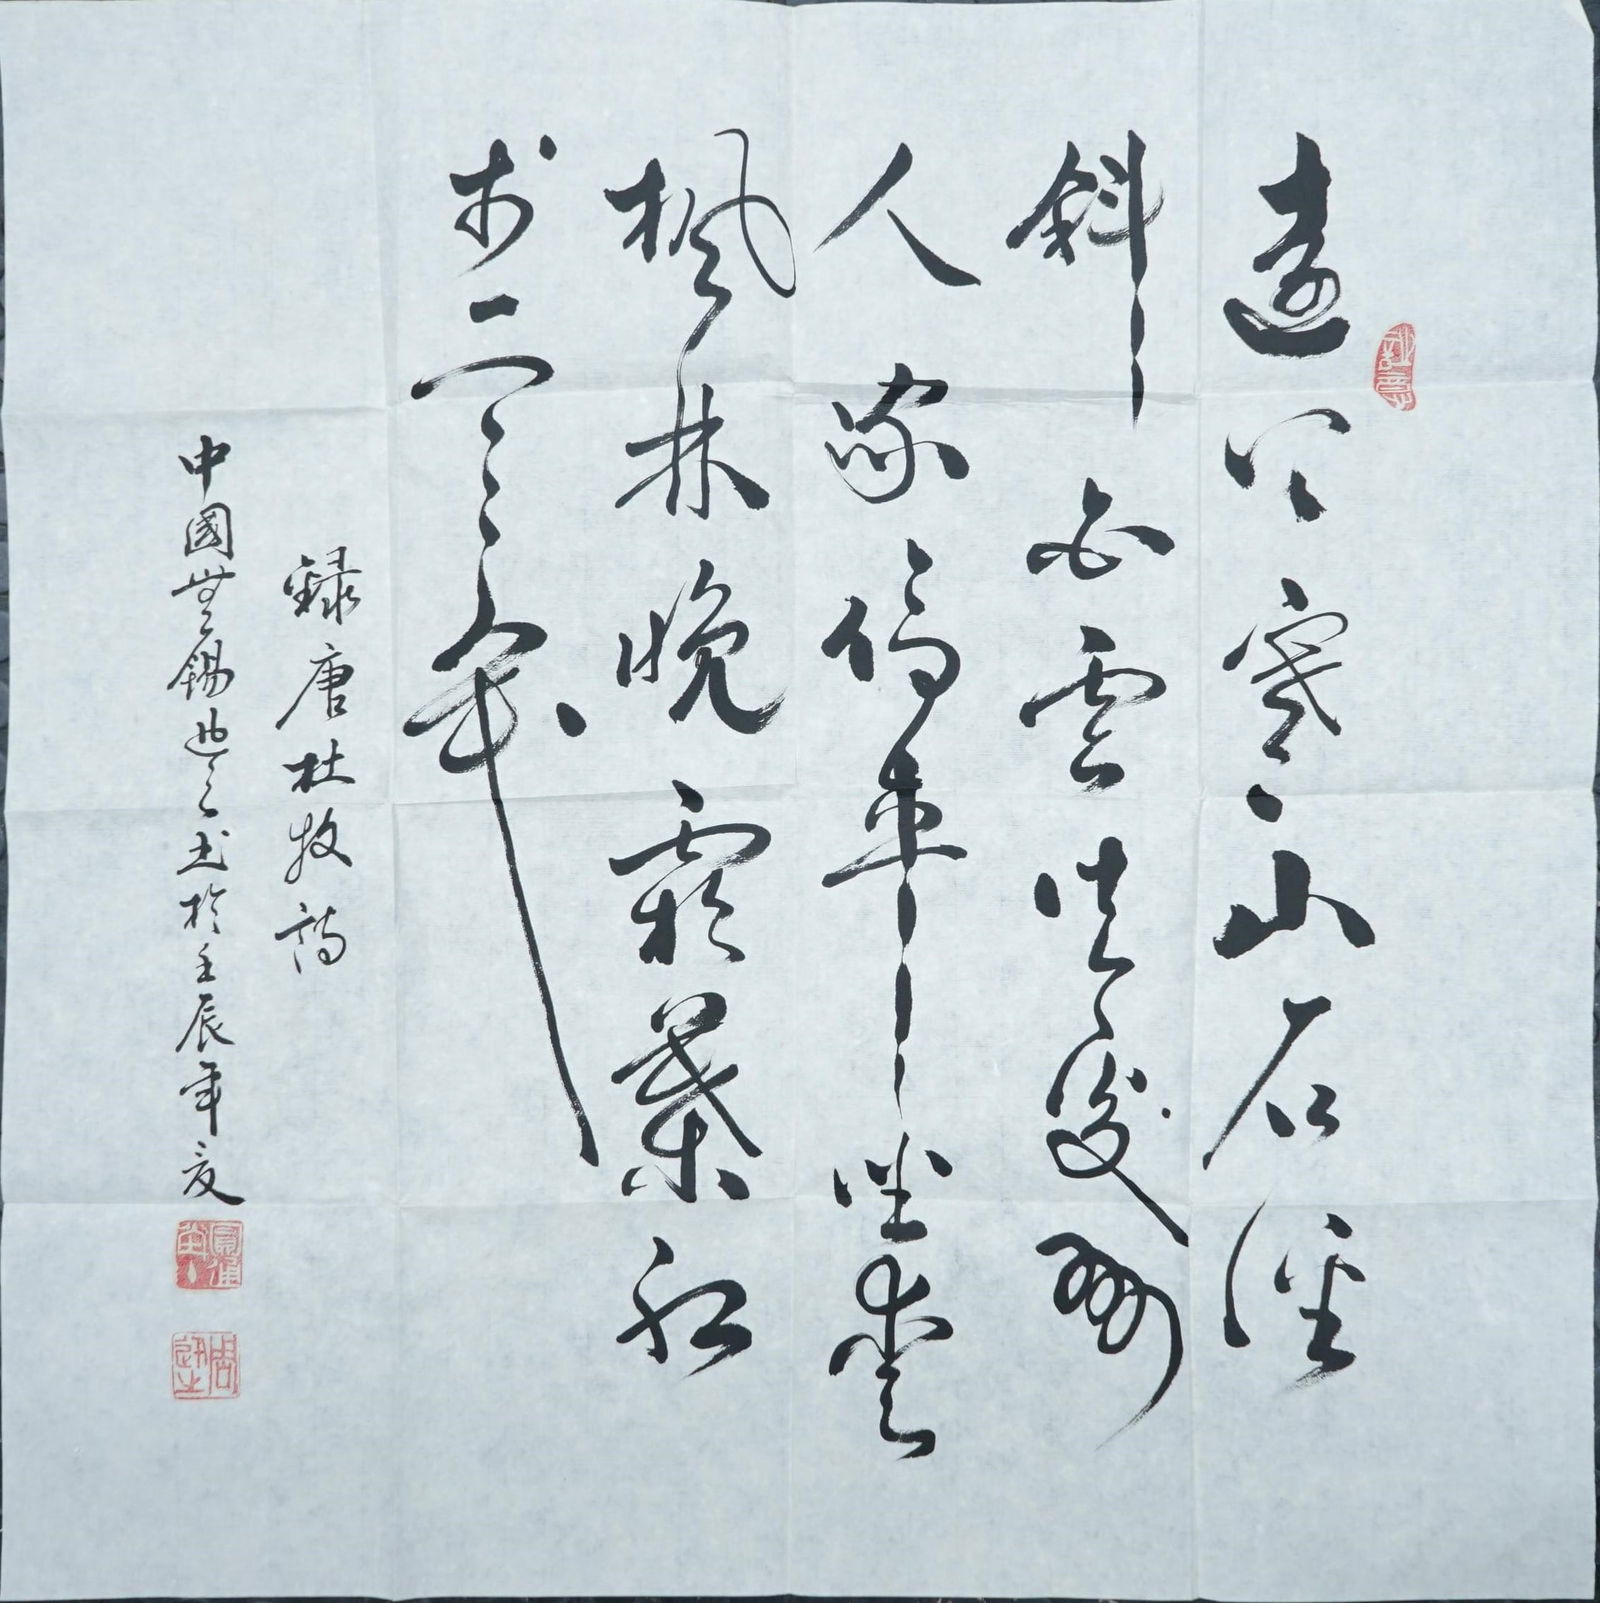 遠上寒山石徑
斜白雲生處有
人家停車坐愛
楓林晚霜葉紅
於二月花
錄唐杜牧詩
中國無錫之書於壬辰年夏